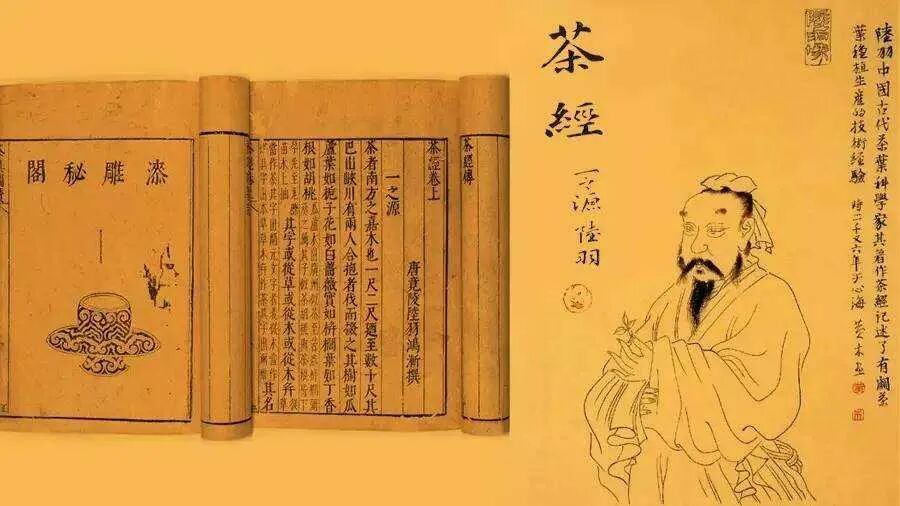 陸羽中國古代茶葉科學家其著作茶經記述了有關茶
葉種植生產的技術經驗 時二千又六年于心海
茶經
一之源 陸羽
茶經卷上
唐竟陵陸羽鴻漸撰
一之源
茶者南方之嘉木也一尺二尺廼至數十尺其
巴山峽川有兩人合抱者伐而掇之其樹如瓜
蘆葉如梔子花如白薔薇實如栟櫚葉如丁香
根如胡桃
其字或從草或從木或從木并
其名
漆雕祕閣